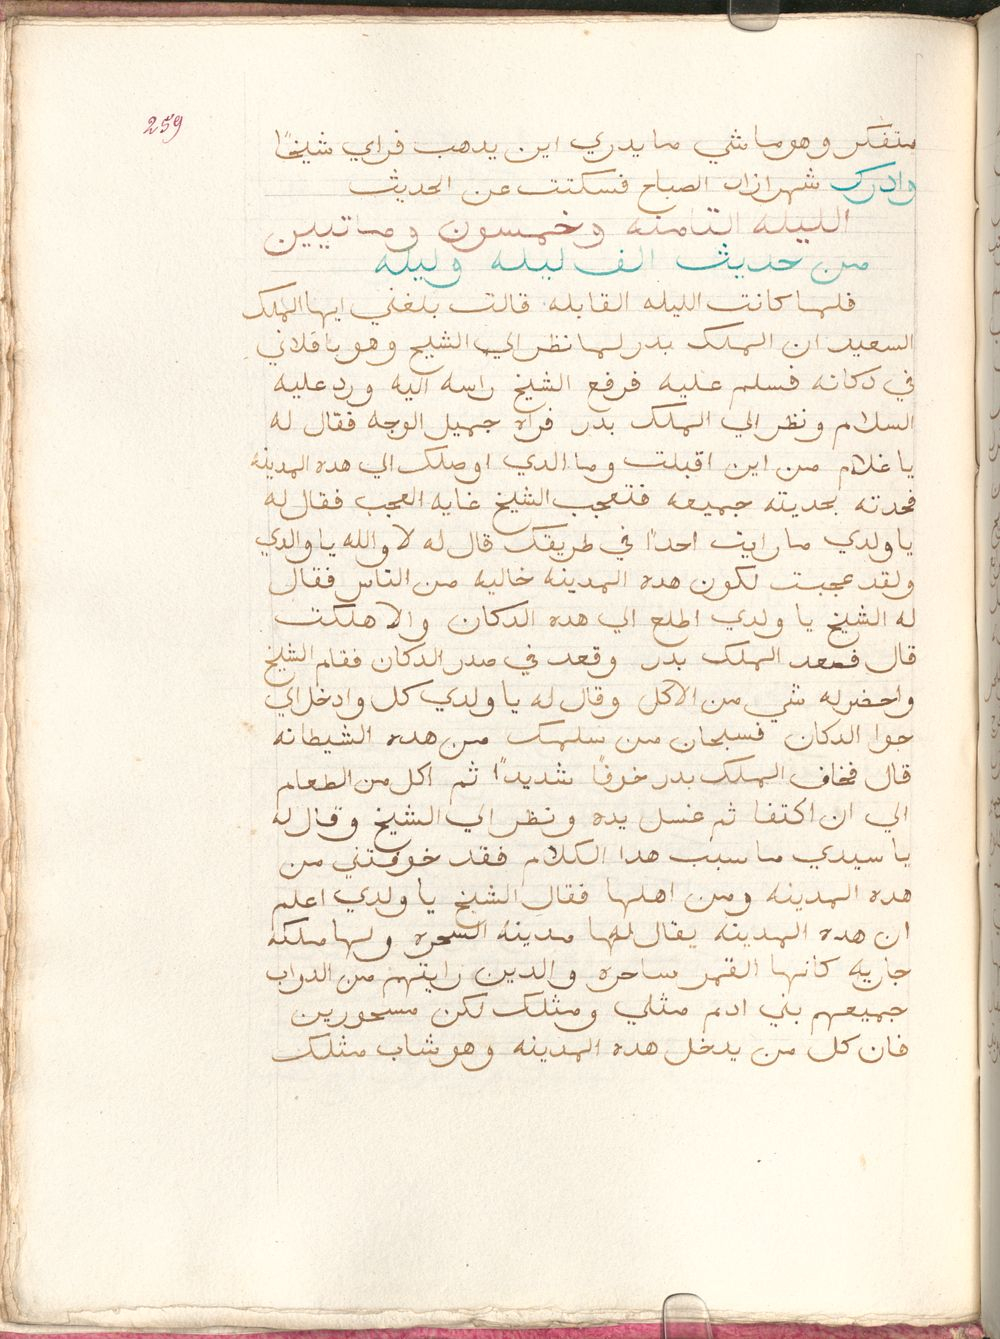 259
متفكر وهو ماشي ما يدري اين يدهب فراي شيخاً
وادرك شهرازاد الصباح فسكتت عن الحديث
الليله التامنه وخمسون وماتيين
من حديث الف ليله وليله
فلما كانت الليله القابله قالت بلغني ايها الملك
السعيد ان الملك بدر لما نظر الي الشيخ وهو باقلاني
في دكانه فسلم عليه فرفع الشيخ راسه اليه ورد عليه
السلام ونظر الي الملك بدر فراه جميل الوجه فقال له
يا غلام من اين اقبلت وما الدي اوصلك الي هده المدينه
فحدته بحديته جميعه فتعجب الشيخ غايه العجب فقال له
يا ولدي ما رايت احداً في طريقك قال له لا والله يا والدي
ولقد عجبت لكون هده المدينه خاليه من الناس فقال
له الشيخ يا ولدي اطلع الي هده الدكان والا هلكت
قال فصعد الملك بدر وقعد في صدر الدكان فقام الشيخ
واحضر له شي من الاكل وقال له يا ولدي كل وادخل اي
جوا الدكان فسبحان من سلمك من هده الشيطانه
قال فخاف الملك بدر خوفاً شديداً ثم اكل من الطعام
الي ان اكتفا ثم غسل يده ونظر الي الشيخ وقال له
يا سيدي ما سبب هدا الكلام فقد خوفتني من
هده المدينه ومن اهلها فقال الشيخ يا ولدي اعلم
ان هده المدينه يقال لها مدينه السحره ولها ملكه
جاريه كانها القمر ساحره والدين رايتهم من الدواب
جميعهم بني ادم مثلي ومثلك لكن مسحورين
فان كل من يدخل هده المدينه وهو شاب مثلك